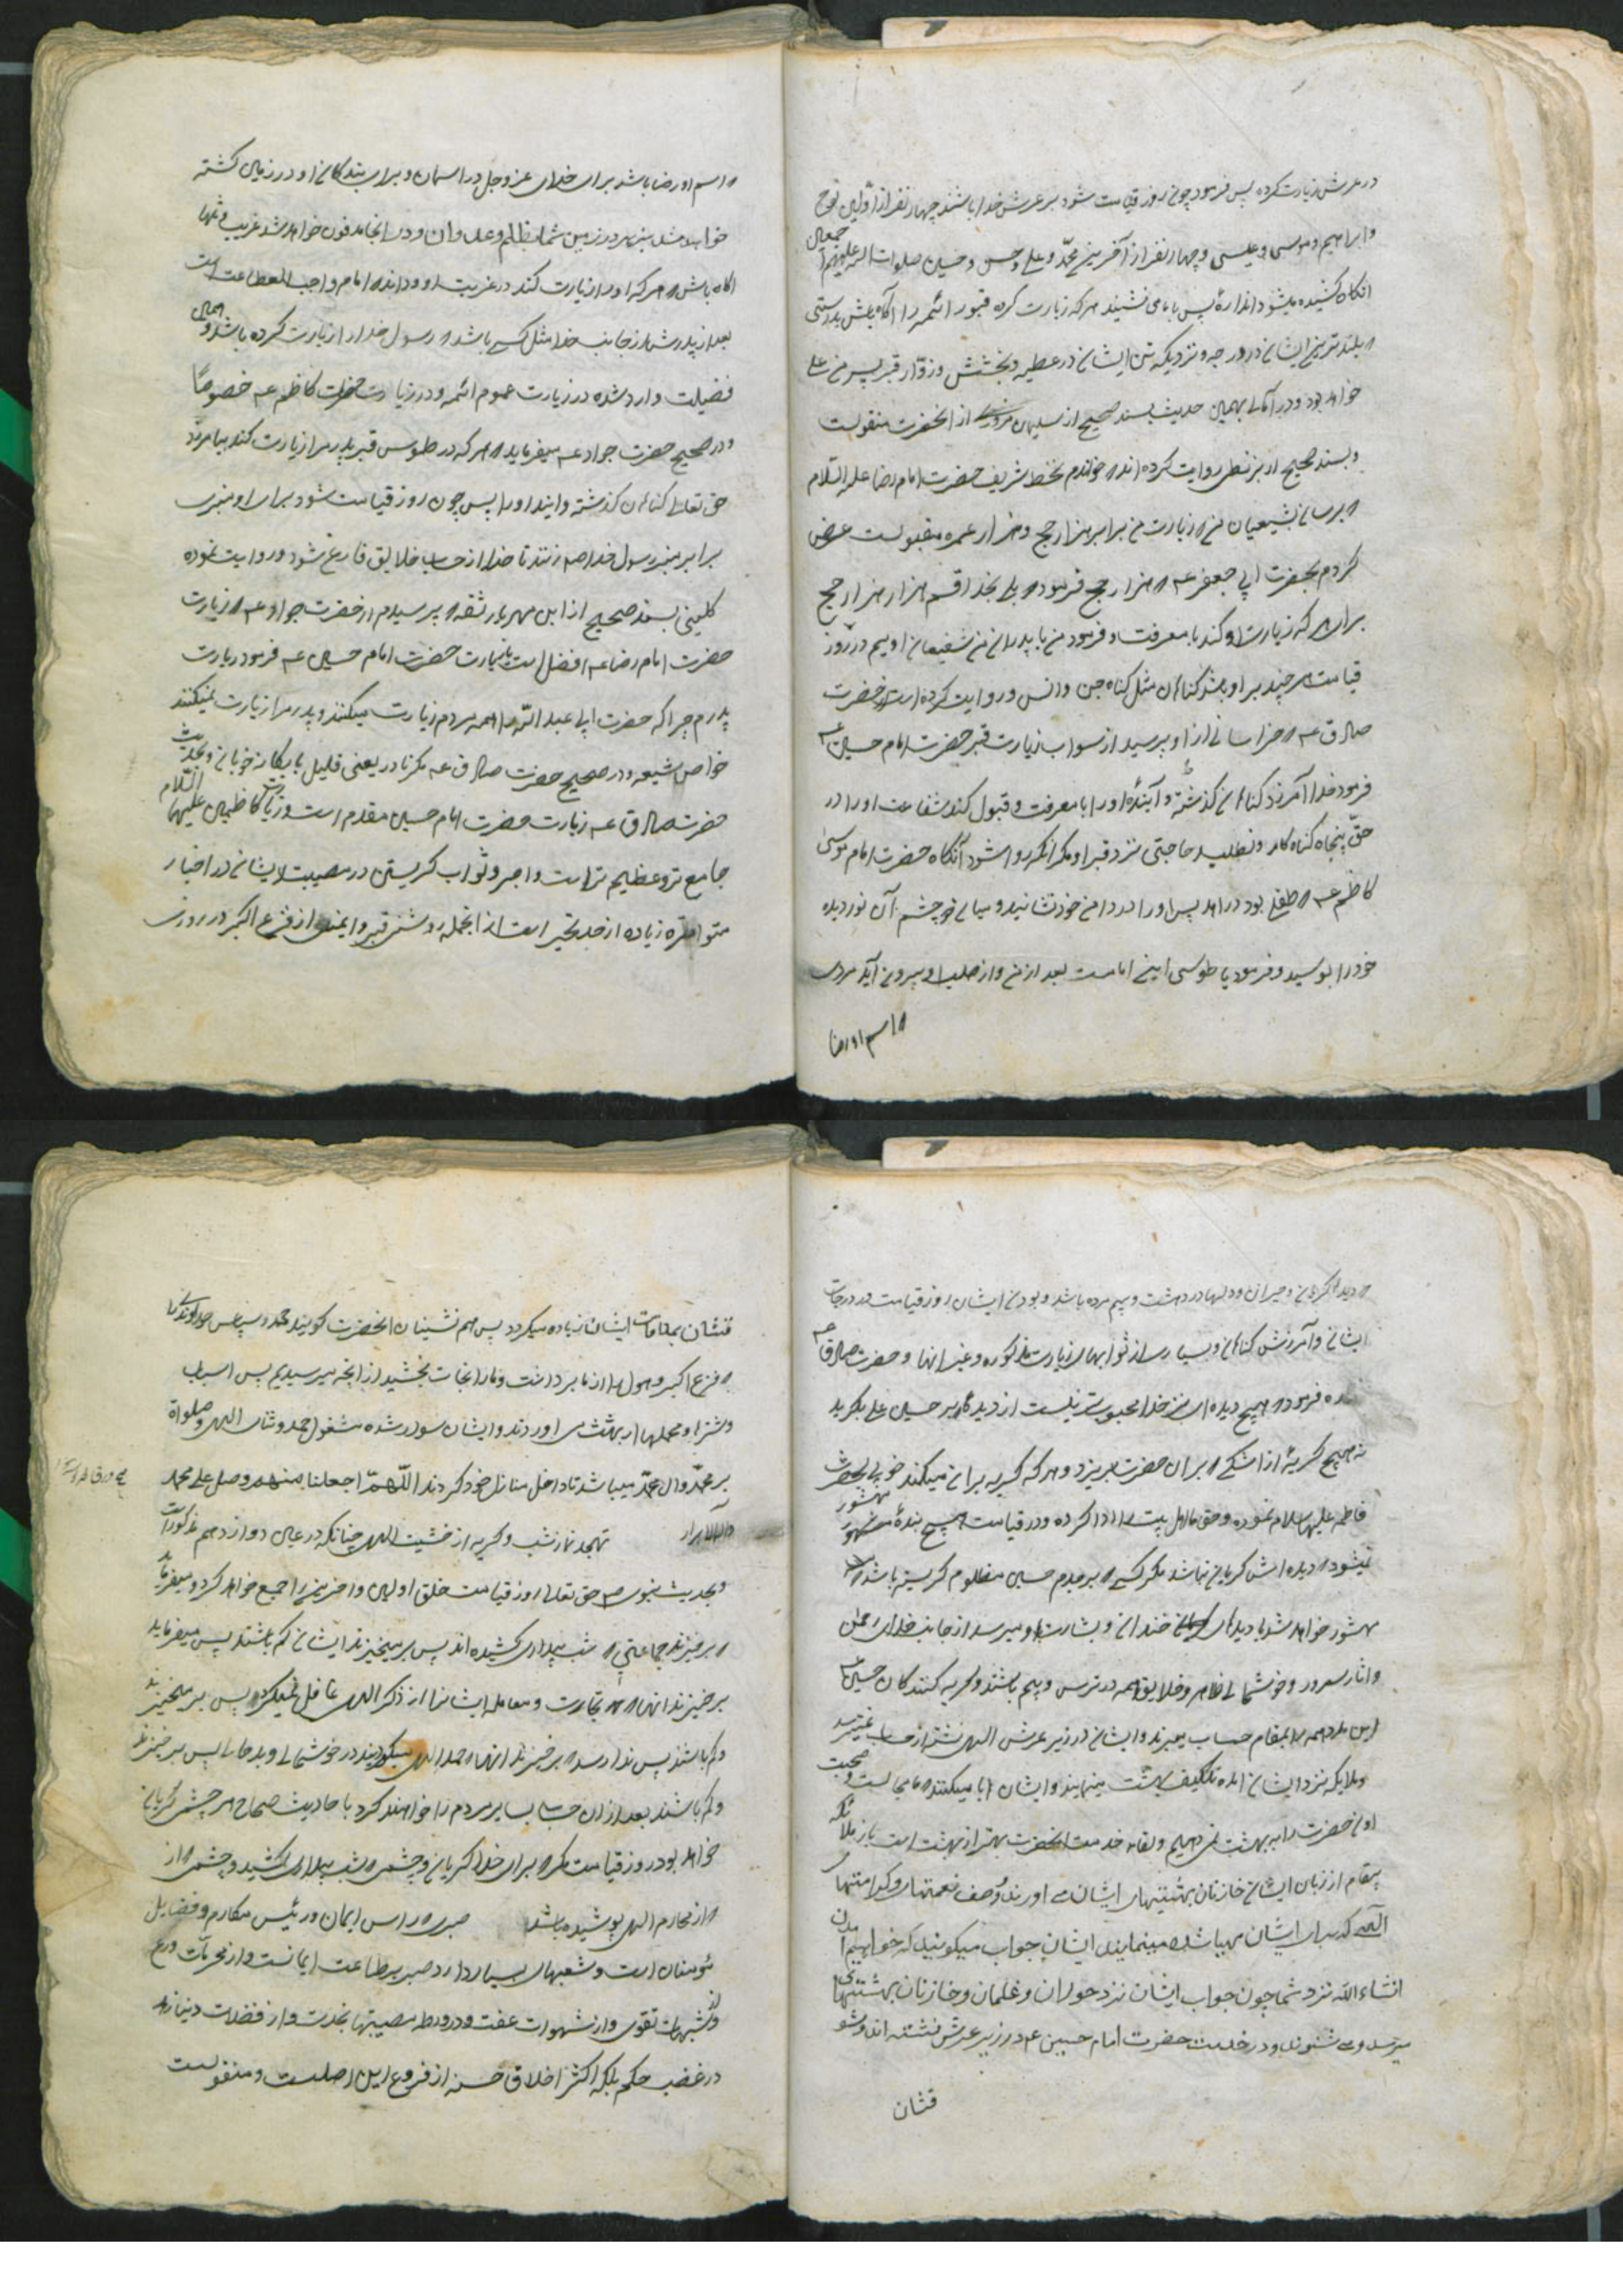 در عرش زیارت کرده پس فرمود چون روز قیامت شود بر عرش خدا باشند چهار نفر از اولین نوح
و ابراهیم و موسی و عیسی و چهار نفر از آخرین محمّد و علی و حسن و حسین صلوات الله علیهم اجمعین
انگاه کشیده میشود اندازهٔ پس با ما می نشیند هر که زیارت کرده قبور ائمه را آگاه باش بدرستی
که بلند ترین ایشان در درجه و نزدیکترین ایشان در عطیه و بخشش زوّار قبر پسر من علی
خواهد بود و در امالی بهمین حدیث بسند صحیح از سلیمان مروزی از انحضرت منقولست
و بسند صحیح از بزنطی روایت کرده اند که خواندم بخط شریف حضرت امام رضا علیه السّلام
که برسان بشیعیان من که زیارت من برابر هزار حج و هزار عمره مقبولست عرض
کردم بحضرت ابی جعفر عه که هزار حج فرمود که بلی بخدا قسم هزار هزار حج
برای هر که زیارت او کند با معرفت و فرمود من با پدران من شفیعان اوییم در روز
قیامت هر چند بر او باشد کناهان مثل کناه جن و انس و روایت کرده است از حضرت
صادق عه که خراسانی از او پرسید از سواب زیارت قبر حضرت امام حسین عه
فرمود خدا آمرزد کناهان کذشته و آیندهٔ او را با معرفت و قبول کند شفاعت او را در
حقّ پنجاه کناه کار و نطلبد حاجتی نزد قبر او مکر انکه روا شود آنگاه حضرت امام موسی
کاظم عه که طفلی بود در امد پس او را در دامن خود نشانید و میان دو چشم آن نور دیده
خود را بوسید و فرمود یا طوسی اینے امامست بعد از من و از صلب او بیرون آید مردی
که اسم او رضا
که اسم او رضا باشد برای خدای عز و جل در اسمان و برای بندکان او در زمین کشته
خواهد شد بزهر در زمین شما بظلم و عدوان و در انجا مدفون خواهد شد غریب و تنها
اگاه باش که هر که او را زیارت کند در غربت او و داند که امام واجب الطاعت است
بعد از پدرش از جانب خدا مثل کسی باشد که رسول خدا را زیارت کرده باشد و همین
فضیلت وارد شده در زیارت عموم ائمه و در زیارت حضرت کاظم عه خصوصاً
و در صحیح حضرت جواد عه میفرماید که هر که در طوس قبر پدرم را زیارت کند بیامرزد
حق تعالی کناهان کذشته و ایندهٔ او را پس چون روز قیامت شود برای او منبری
برابر منبر رسول خدا صه زنند تا خدا از حساب خلایق فارغ شود و روایت نموده
کلینی بسند صحیح از ابن مهزیار ثقه که پرسیدم از حضرت جواد عه که زیارت
حضرت امام رضا عه افضل است یا زیارت حضرت امام حسین عه فرمود زیارت
پدرم چرا که حضرت ابی عبد الله را همه مردم زیارت میکنند و پدرم را زیارت نمیکنند
خواص شیعه و در صحیح حضرت صادق عه مکر نادر یعنی قلیل یا یکان خوبان و بحدیث
حضرت صادق عه زیارت حضرت امام حسین مقدم است و زیارت کاظمین علیهما السّلام
جامع تر و عظیم تر است و اجر و ثواب کریستن در مصیبت ایشان در اخبار
متواتره زیاده از حد تحریر است از انجمله روشنی قبر و ایمنی از فزع اکبر در روزی
که دیدها کریان و حیران و دلها در دهشت و بیم مرده باشد و بودن ایشان روز قیامت در درجات
ایشان و آمرزش کناهان و بسیاری از ثوابهای زیارت مذکوره و غیر انها و حضرت صادق عه
فرموده که هیچ دیده ای نزد خدا محبوب تر نیست از دیده که بر حسین علی بکرید
نه هیچ کریهٔ از اشکے که بران حضرت بریزد و هر که کریه بران میکند خوبی بحضرت
فاطمه علیها سلام نموده و حق ما اهل بیت را ادا کرده و در قیامت هیچ بندهٔ محشور
نمیشود که دیده اش کریان نباشد مگر کسے که بر جدم حسین مظلوم کریسته باشد که
محشور خواهد شد با دیدهای خندان و بشارت باو میرسد از جانب خدای رحمن
و اثار سرور و خوشحالی ظاهر و خلایق همه در ترس و بیم باشند و کریه کنندکان حسین عه
این مردمه را بمقام حساب میبرند و ایشان در زیر عرش الهی نشسته از حساب نمیترسند
و ملایکه نزد ایشان امده تکلیف بهشت مینمایند و ایشان ابا میکنند که ما مجالست و صحبت
اون حضرت را به بهشت نمیدهیم و لقای خدمت انحضرت بهتر از بهشت است باز ملائکه
پیغام از زبان ایشان خازنان بهشتیهای ایشان می اورند و وصف نعمتهای و کرامتها
الهی که برای ایشان مهیا شده مینمایند ایشان جواب میکویند که خواهیم آمدن
انشاء الله نزد شما چون جواب ایشان نزد حوران و غلمان و خازنان بهشتیهای
میرسد و می شنوند و در خدمت حضرت امام حسین ع در زیر عرش نشسته اند و شو
قشان
قشان بملاقات ایشان زیاده میکردد پس هم نشینان انحضرت کویند حمد و سپاس خداوندی را
که فزع اکبر و هول را از ما برداشت و ما را نجات بخشید از انچه میرسیدیم پس اسبان
و شتران و محملها از بهشت می اوردند و ایشان سوار شده مشغول حمد و ثنای الهی و صلواة
بر محمّد و ال محمّد میباشند تا داخل منازل خود کردند اللّهمّ اجعلنا منهم وصل علی محمد
و آله الابرار تهجد نماز شب و کریه از خشیت الهی چنانکه در عین دوازدهم مذکور است
و بحدیث نبوی صه حق تعالی روز قیامت خلق اولین و اخرین را جمع خواهد کرد و میفرماید
که برخیزند جماعتی که شب بیداری کشیده اند پس برمیخیزند ایشان کم باشند پس میفرماید
برخیزند انها که تجارت و معامله ایشانرا از ذکر الهی غافل نمیکرد پس برمیخیزند
و کم باشند پس ندا رسد که برخیزند انها که حمد الهی میکویند در خوشحالی و بد حالی پس برخیزند
و کم باشند بعد از ان حساب سایر مردم را خواهند کرد با حادیث صحاح هر چشمی کریان
خواهد بود روز قیامت مکر که برای خدا کریان و چشمی که شب بیداری کشید و چشمی که از
که از محارم الهی پوشیده باشد صبر که راس ایمان و رئیس مکارم و فضایل
مؤمنان است و شعبهای بسیار دارد صبر بر طاعت ایمانست و از محرمات ورع
و از شبهات تقوی و از شهوات عفت و در ورطه مصیبتها
در غضب حکم بلکه اکثر اخلاق حسنه از فروع این اصلست و منقولست